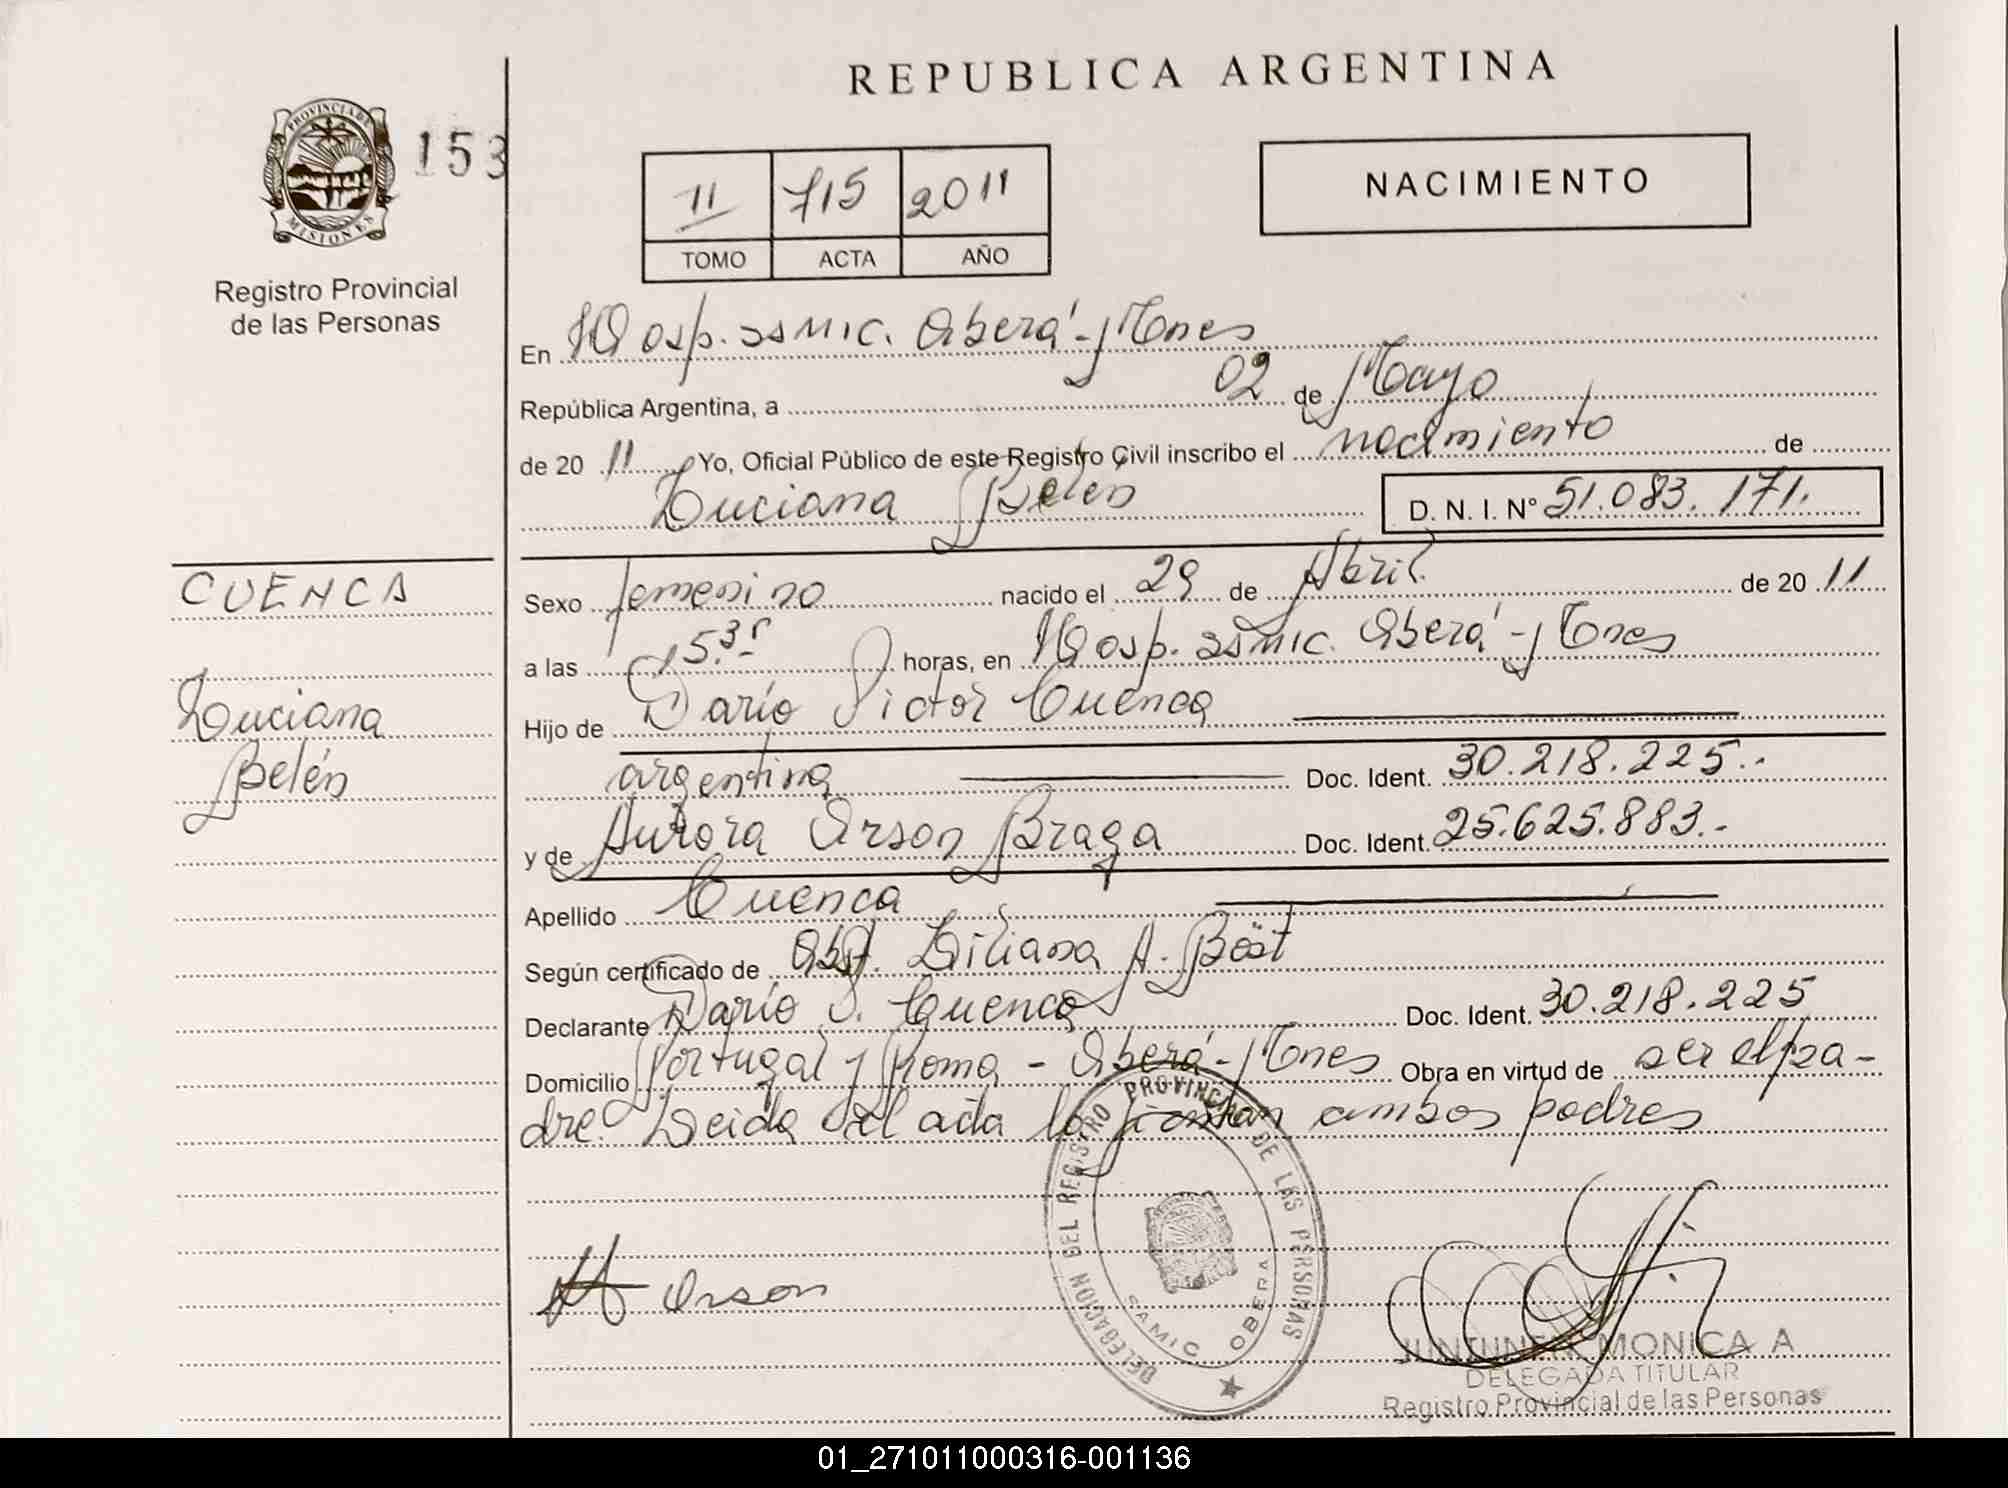 REPUBLICA ARGENTINA
PROVINCIA DE
MISIONES
153
Registro Provincial
de las Personas
II 715 2011
TOMO ACTA AÑO
NACIMIENTO
En Hosp. SAMIC. Oberá - Mnes
República Argentina, a 02 de Mayo
de 20 11 Yo, Oficial Público de este Registro Civil inscribo el nacimiento de
Luciana Belén D. N. I. N° 51.083.171.
CUENCA
Luciana
Belén
Sexo femenino nacido el 29 de Abril. de 20 11
a las horas, en Hosp. SAMIC. Oberá - Mnes
Hijo de Darío Victor Cuenca
argentina Doc. Ident. 30.218.225.-
y de Aurora Orson Braga Doc. Ident. 25.625.883.-
Apellido Cuenca
Según certificado de Obst. Liliana A. Böst
Declarante Darío V. Cuenca Doc. Ident. 30.218.225
Domicilio Portugal y Roma - Oberá - Mnes Obra en virtud de ser el pa-
dre. Leida el acta la firman ambos padres
Orson
DELEGACION DEL REGISTRO PROVINCIAL DE LAS PERSONAS
SAMIC OBERA
MONICA A
DELEGADA TITULAR
Registro Provincial de las Personas
01_271011000316-001136